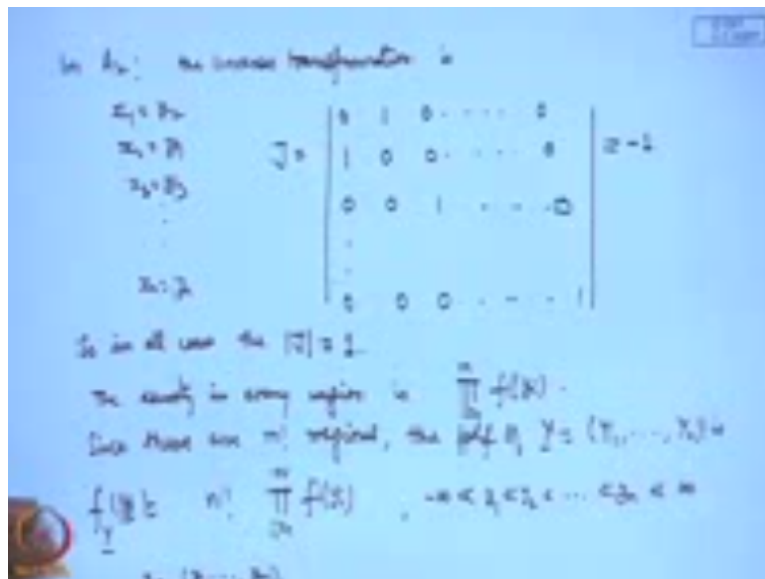 In A₂: the inverse transformation is
x₁ = y₂
x₂ = y₁
x₃ = y₃
⋮
xₙ = yₙ
J = | 0 1 0 ..... 0 |
| 1 0 0 ..... 0 | = -1
| 0 0 1 - - - 0 |
| 0 0 0 - - - 1 |
So in all cases the |J| = 1
The density in every region is ∏ f(yᵢ).
Since there are n! regions, the pdf of Y = (Y₁, ..., Yₙ) is
f_Y(y) = n! ∏ f(yᵢ), -∞ < y₁ < y₂ < ... < yₙ < ∞